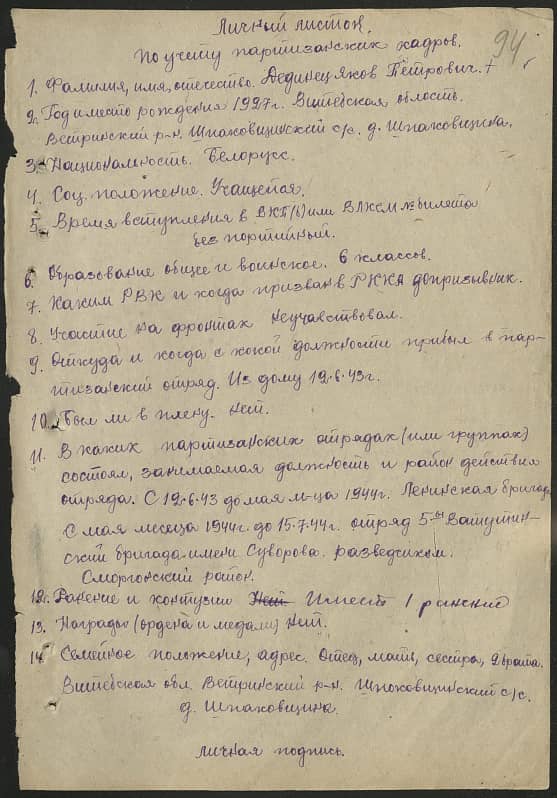 Личный листок.
94
По учету партизанских кадров.
1. Фамилия, имя, отечество. Дединец Яков Петрович. +
2. Год и место рождения 1927г. Витебская область.
Ветринский р-н. Шпаковщинский с/с. д. Шпаковщина.
3. Национальность. Белорусс.
4. Соц. положение. Учащейся.
5. Время вступления в ВКП(б) или ВЛКСМ № билета
без портийный.
6. Образование общее и воинское. 6 классов.
7. Каким РВК и когда призван в РККА допризывник.
8. Участие на фронтах неучавствовал.
9. Откуда и когда с какой должности прибыл в пар-
тизанский отряд. Из дому 12.6.43г.
10. Был ли в плену. Нет.
11. В каких партизанских отрядах (или группах)
состоял, занимаемая должность и район действия
отряда. С 12.6.43 до мая м-ца 1944г. Ленинская бригад
С мая месеца 1944г. до 15.7.44г. отряд 5-ый Ватутин-
ский бригада имени Суворова. разведчиком.
Сморгонский район.
12. Ранение и контузии Нет Имеет 1 ранение
13. Награды (ордена и медали) Нет.
14. Семейное положение, адрес. Отец, мать, сестра, 2 брата.
Витебская обл. Ветринский р-н. Шпоковщинский с/с.
д. Шпаковщина.
личная подпись.